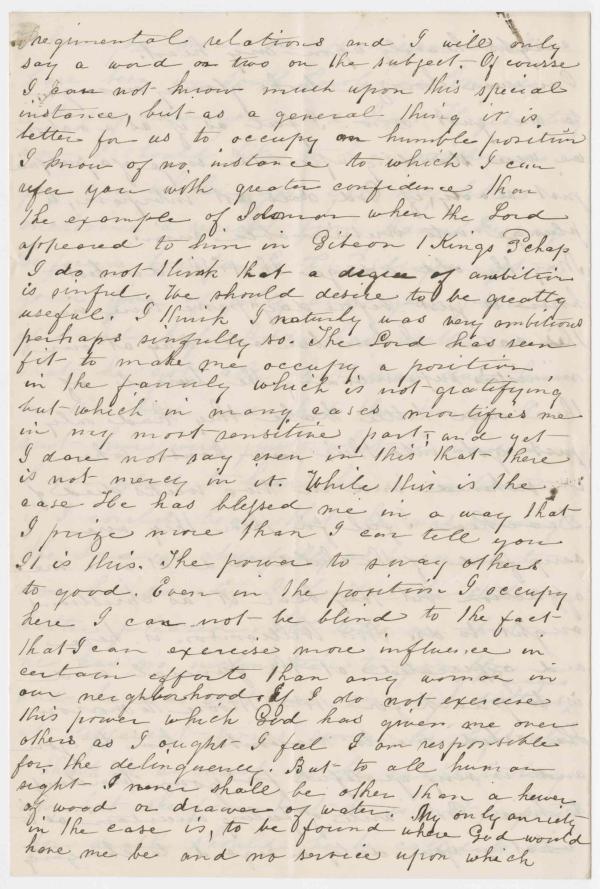 regimental relations and I will only
say a word or two on the subject. Of course
I can not know much upon this special
instance, but as a general thing it is
better for us to occupy an humble position
I know of no instance to which I can
refer you with greater confidence than
the example of Solomon when the Lord
appeared to him in Gibeon 1 Kings 3 chap
I do not think that a degree of ambition
is sinful. We should desire to be greatly
useful. I think I naturly was very ambitious
perhaps sinfully so. The Lord has seen
fit to make me occupy a position
in the family which is not gratifying
but which in many cases mortifies me
in my most sensitive part, and yet
I dare not say even in this that there
is not mercy in it. While this is the
case He has blessed me in a way that
I prize more than I can tell you
It is this. The power to sway others
to good. Even in the position I occupy
here I can not be blind to the fact
that I can exercise more influence in
certain efforts than any woman in
our neighborhood. If I do not exercise
this power which God has given me over
others as I ought I feel I am responsible
for the delinquency. But to all human
sight I never shall be other than a hewer
of wood or drawer of water. My only anxiety
in the case is, to be found where God would
have me be and no service upon which